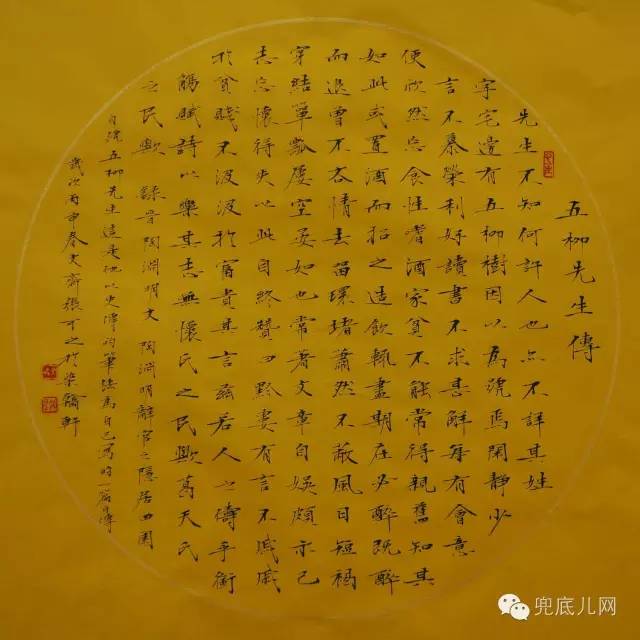 五柳先生傳
先生不知何許人也亦不詳其姓
字宅邊有五柳樹因以為號焉閑靜少
言不慕榮利好讀書不求甚解每有會意
便欣然忘食性嗜酒家貧不能常得親舊知其
如此或置酒而招之造飲輒盡期在必醉既醉
而退曾不吝情去留環堵蕭然不蔽風日短褐
穿結簞瓢屢空晏如也常著文章自娛頗示己
志忘懷得失以此自終贊曰黔婁有言不戚戚
於貧賤不汲汲於富貴其言茲若人之儔乎銜
觴賦詩以樂其志無懷氏之民歟葛天氏
之民歟 錄晉陶淵明文 陶淵明辭官之隱居田園
自號五柳先生這是他以史傳的筆法為自己寫的一篇自傳
歲次丙申春文齋張可之於軒
兜底儿网